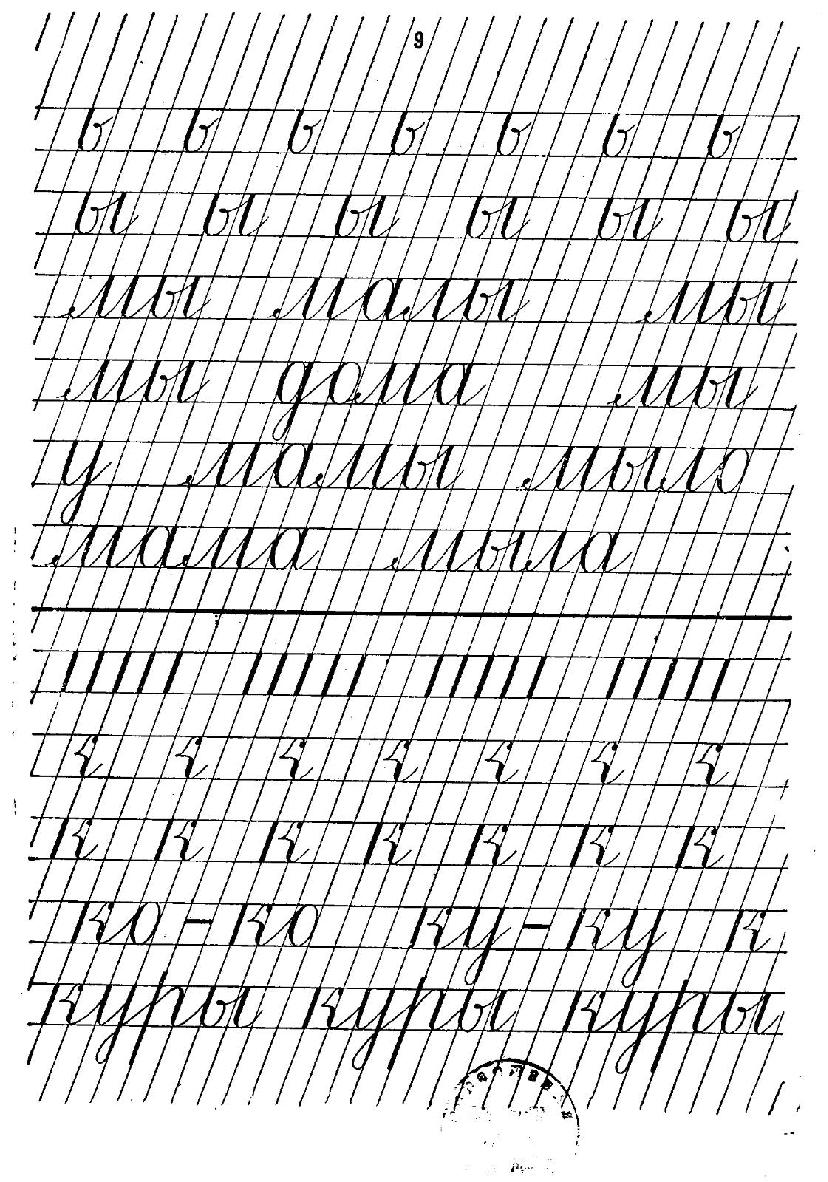 9
ь ь ь ь ь ь ь
ы ы ы ы ы ы
мы малы мы
мы дома мы
у мамы мыло
мама мыла
к к к к к к к
ко-ко ку-ку к
куры куры куры